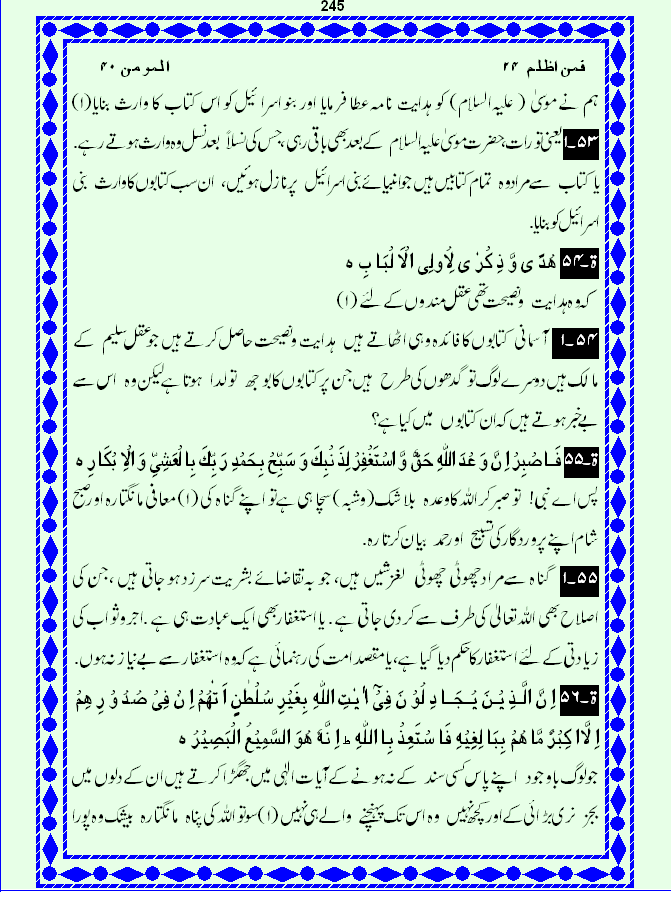 245
فمن اظلم ۲۴ المومن ۴۰
ہم نے موسیٰ ( علیہ السلام) کو ہدایت نامہ عطا فرمایا اور بنو اسرائیل کو اس کتاب کا وارث بنایا(۱)
۵۳۔۱ یعنی تورات، حضرت موسیٰ علیہ السلام کے بعد بھی باقی رہی، جس کی نسلاً بعد نسل وہ وارث ہوتے رہے۔
یا کتاب سے مراد وہ تمام کتابیں ہیں جو انبیائے بنی اسرائیل پر نازل ہوئیں، ان سب کتابوں کا وارث بنی
اسرائیل کو بنایا۔
ۃ۔۵۴ ھُدًی وَّ ذِکْرٰی لِاُولِی الْاَ لْبَا بِ ہ
کہ وہ ہدایت و نصیحت تھی عقل مندوں کے لئے (۱)
۵۴۔۱ آسمانی کتابوں کا فائدہ وہی اٹھاتے ہیں ہدایت و نصیحت حاصل کرتے ہیں جو عقل سلیم کے
مالک ہیں دوسرے لوگ تو گدھوں کی طرح ہیں جن پر کتابوں کا بوجھ تو لدا ہوتا ہے لیکن وہ اس سے
بےخبر ہوتے ہیں کہ ان کتابوں میں کیا ہے؟
ۃ۔۵۵ فَاصْبِرْ اِنَّ وَعْدَ اللّٰہِ حَقٌّ وَّ اسْتَغْفِرْ لِذَنْبِکَ وَ سَبِّحْ بِحَمْدِ رَبِّکَ بِالْعَشِیِّ وَ الْاِ بْکَارِ ہ
پس اے نبی! تو صبر کر اللہ کا وعدہ بلا شک (و شبہ) سچا ہی ہے تو اپنے گناہ کی (۱) معافی مانگتا رہ اور صبح
شام اپنے پروردگار کی تسبیح اور حمد بیان کرتا رہ۔
۵۵۔۱ گناہ سے مراد چھوٹی چھوٹی لغزشیں ہیں، جو بہ تقاضائے بشریت سرزد ہو جاتی ہیں، جن کی
اصلاح بھی اللہ تعالیٰ کی طرف سے کر دی جاتی ہے۔ یا استغفار بھی ایک عبادت ہی ہے۔ اجر و ثواب کی
زیادتی کے لئے استغفار کا حکم دیا گیا ہے، یا مقصد امت کی رہنمائی ہے کہ وہ استغفار سے بے نیاز نہ ہوں۔
ۃ۔۵۶ اِنَّ الَّذِیْنَ یُجَادِ لُوْ نَ فِیْٓ اٰ یٰتِ اللّٰہِ بِغَیْرِ سُلْطٰنٍ اَتٰھُمْ اِنْ فِیْ صُدُوْ رِ ھِمْ
اِلَّا کِبْرٌ مَّا ھُمْ بِبَا لِغِیْہِ فَا سْتَعِذْ بِا اللّٰہِ ط اِ نَّہٗ ھُوَ السَّمِیْعُ الْبَصِیْرُ ہ
جو لوگ باوجود اپنے پاس کسی سند کے نہ ہونے کے آیات الٰہی میں جھگڑا کرتے ہیں ان کے دلوں میں
بجز نری بڑائی کے اور کچھ نہیں وہ اس تک پہنچنے والے ہی نہیں (۱) سو تو اللہ کی پناہ مانگتا رہ بیشک وہ پورا